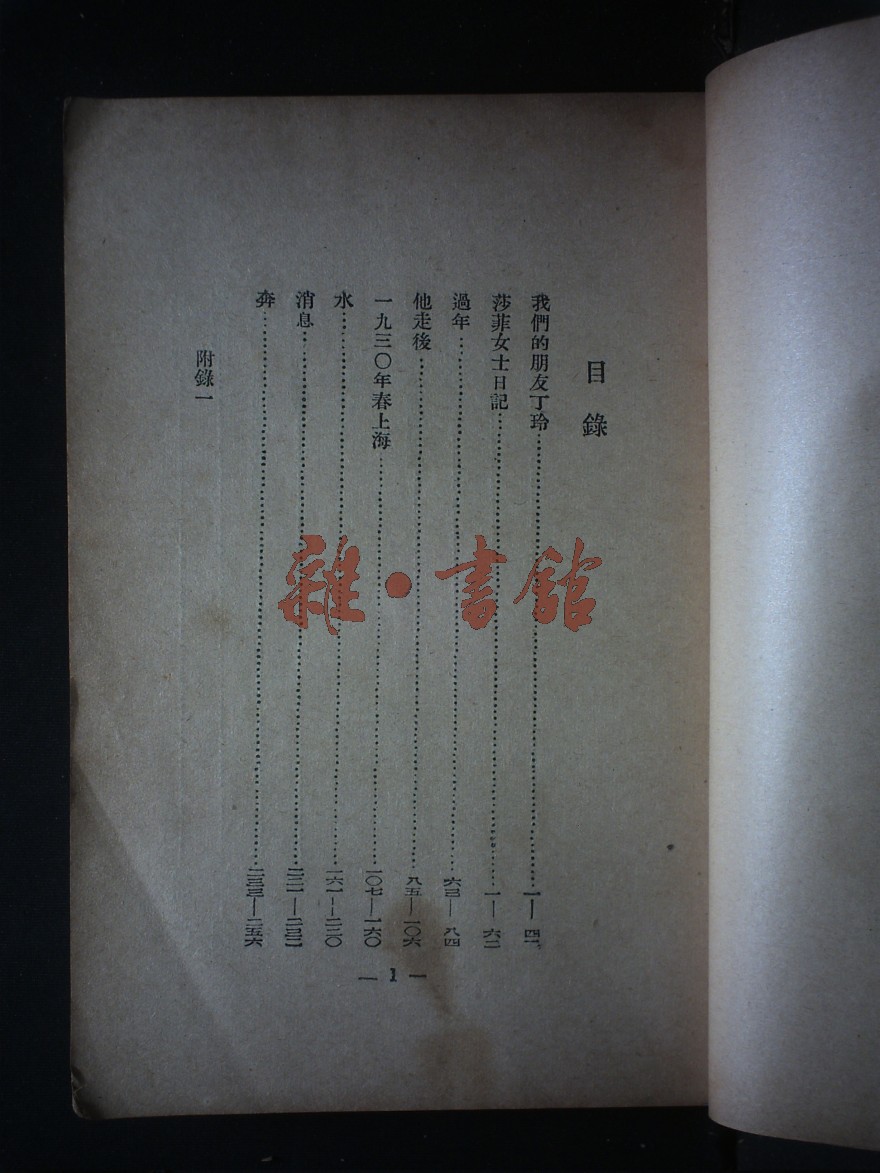 目錄
我們的朋友丁玲……一—四一
莎菲女士日記……一—六二
過年……六三—八四
他走後……八五—一〇六
一九三〇年春上海……一〇七—一六〇
水……一六一—二二〇
消息……二二一—二三二
奔……二三三—二五六
附錄一
— 1 —
雜·書館